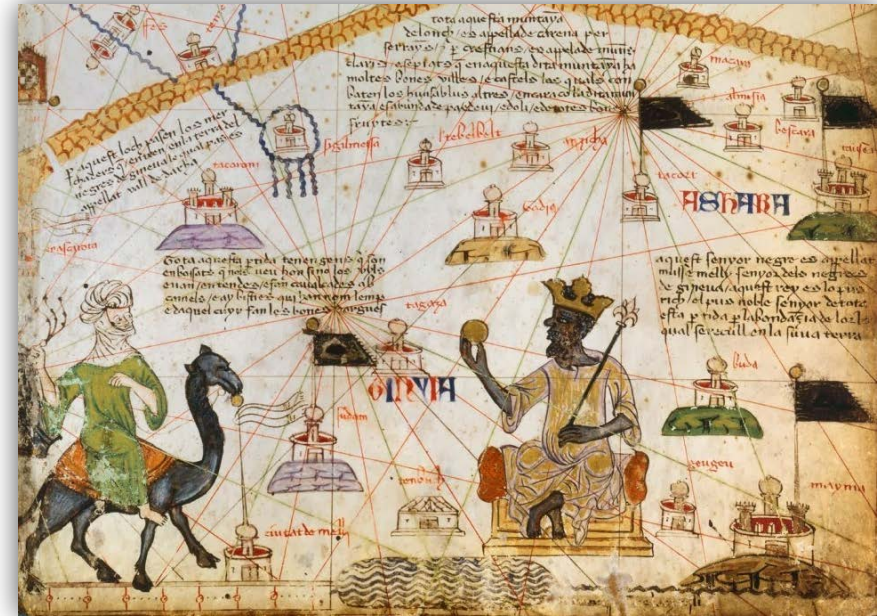 tota aquesta muntaya
de lonch / es appellade carena per
serrayns / ꝑ crestians / es appelade muntis
claris / e sepiats q̄ en aquesta dita muntaya ha
moltes bones villes / e castels los quals con
baten los huns ab lus altres / encara co la dita mun
taya es abunda de pa e de vi / e doli / e de totes bones
fruytes
ꝑ aquest loch pasen los mer
chaders q̄ entren en la terra dels
negres de gineua lo qual pas es
appellat vall de darha
fes
magun
almsia
boscara
sigilmessa
tebelbelt
tacort
tacoram
badis
ASHARA
tota aquesta ꝑtida tenen gens q̄ son
enbosats q̄ nols veu hom sino los uyls
e uan / en tendes / e fan caualcades ab
camels / e ay bisties qui han nom lemp
e daquel cuyr fan les bones dargues
aquest senyor negre es appellat
musse melly senyor dels negres
de gineua / aquest rey es lo pus
rich / el pus noble senyor de tota
esta ꝑtida ꝑ labondazia de lor lo
qual se recull en la suua terra
tagaza
GINVIA
buda
sudam
tenbuch
geugeu
mayma
ciutat de melli